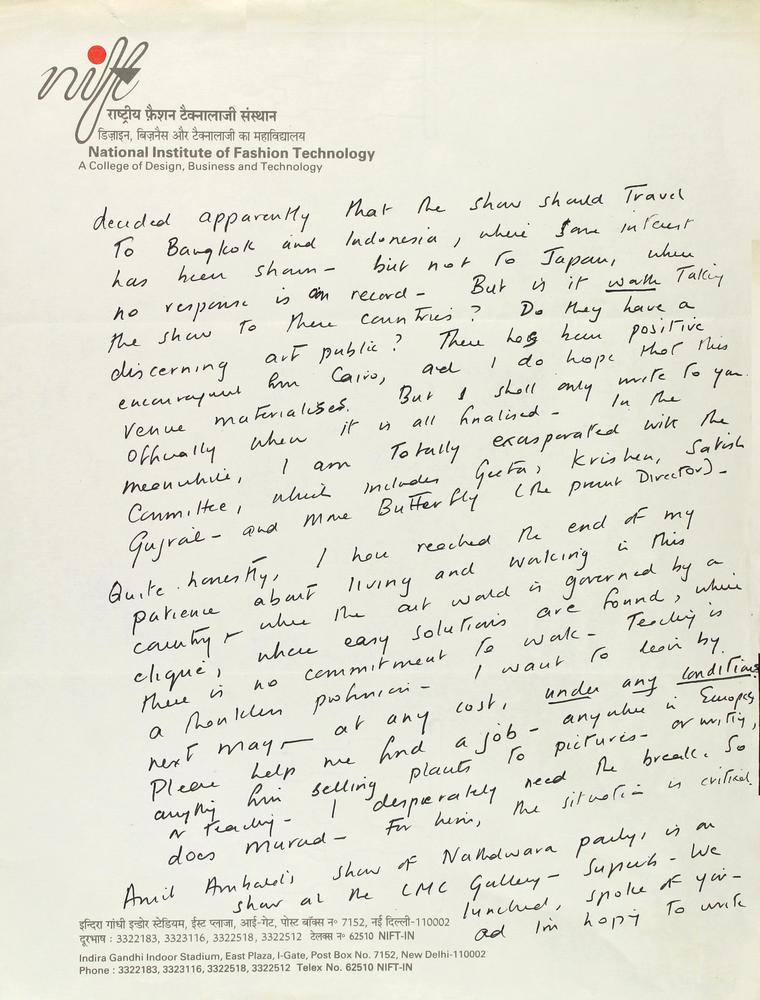 nift
राष्ट्रीय फ़ैशन टैक्नालाजी संस्थान
डिज़ाइन, बिज़नैस और टैक्नालाजी का महाविद्यालय
National Institute of Fashion Technology
A College of Design, Business and Technology
decided apparently that the show should Travel
To Bangkok and Indonesia, where some interest
has been shown - but not to Japan, when
no response is on record - But is it worth Taking
the show To these countries? Do they have a
discerning art public? There has been positive
encouragement from Cairo, and I do hope that this
venue materialises. But I shall only write to you
officially when it is all finalised - In the
meanwhile, I am Totally exasporated with the
Committee, which includes Geeta, Krishen, Satish
Gujral - and Mme Butterfly (the present Director) -
Quite honestly, I have reached the end of my
patience about living and working in this
country - when the art world is governed by a
clique, where easy solutions are found, where
there is no commitment to work - Teaching is
a thankless profession - I want to leave by
next May - at any cost, under any conditions
Please help me find a job - anywhere in Europe,
anything from selling plants to pictures - or writing,
or teaching - I desperately need the break. So
does Murad - For him, the situation is critical.
Amit Ambalal's show of Nathdwara party, is on
show at the CMC Gallery - Superb - We
lunched, spoke of you -
and I'm hoping To write
इन्दिरा गांधी इन्डोर स्टेडियम, ईस्ट प्लाजा, आई-गेट, पोस्ट बॉक्स न० 7152, नई दिल्ली-110002
दूरभाष : 3322183, 3323116, 3322518, 3322512 टेलक्स न० 62510 NIFT-IN
Indira Gandhi Indoor Stadium, East Plaza, I-Gate, Post Box No. 7152, New Delhi-110002
Phone : 3322183, 3323116, 3322518, 3322512 Telex No. 62510 NIFT-IN